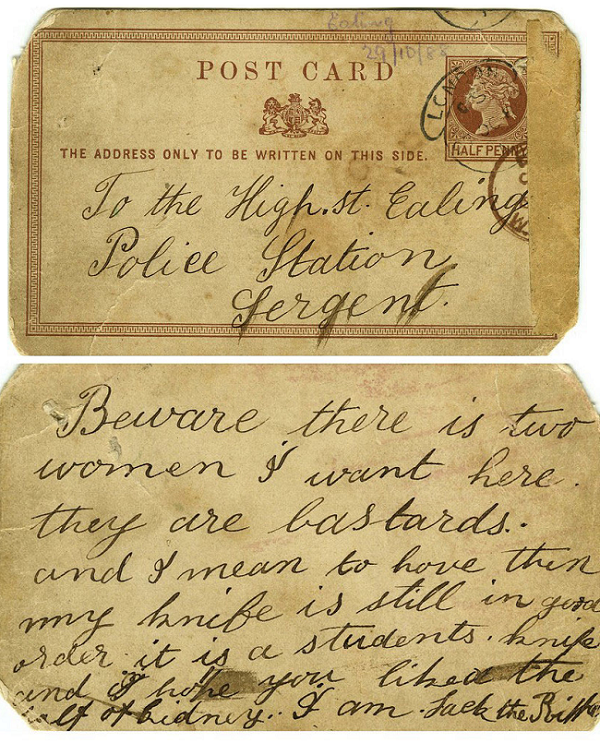 Ealing
29/10/88
POST CARD
THE ADDRESS ONLY TO BE WRITTEN ON THIS SIDE.
HALF PENNY
To the High.st. Ealing
Police Station
Sergent.
Beware there is two
women I want here.
they are bastards.
and I mean to hove them
my knife is still in good
order it is a students. knife
and I hope you liked the
half of kidney.. I am. Jack the Ripper